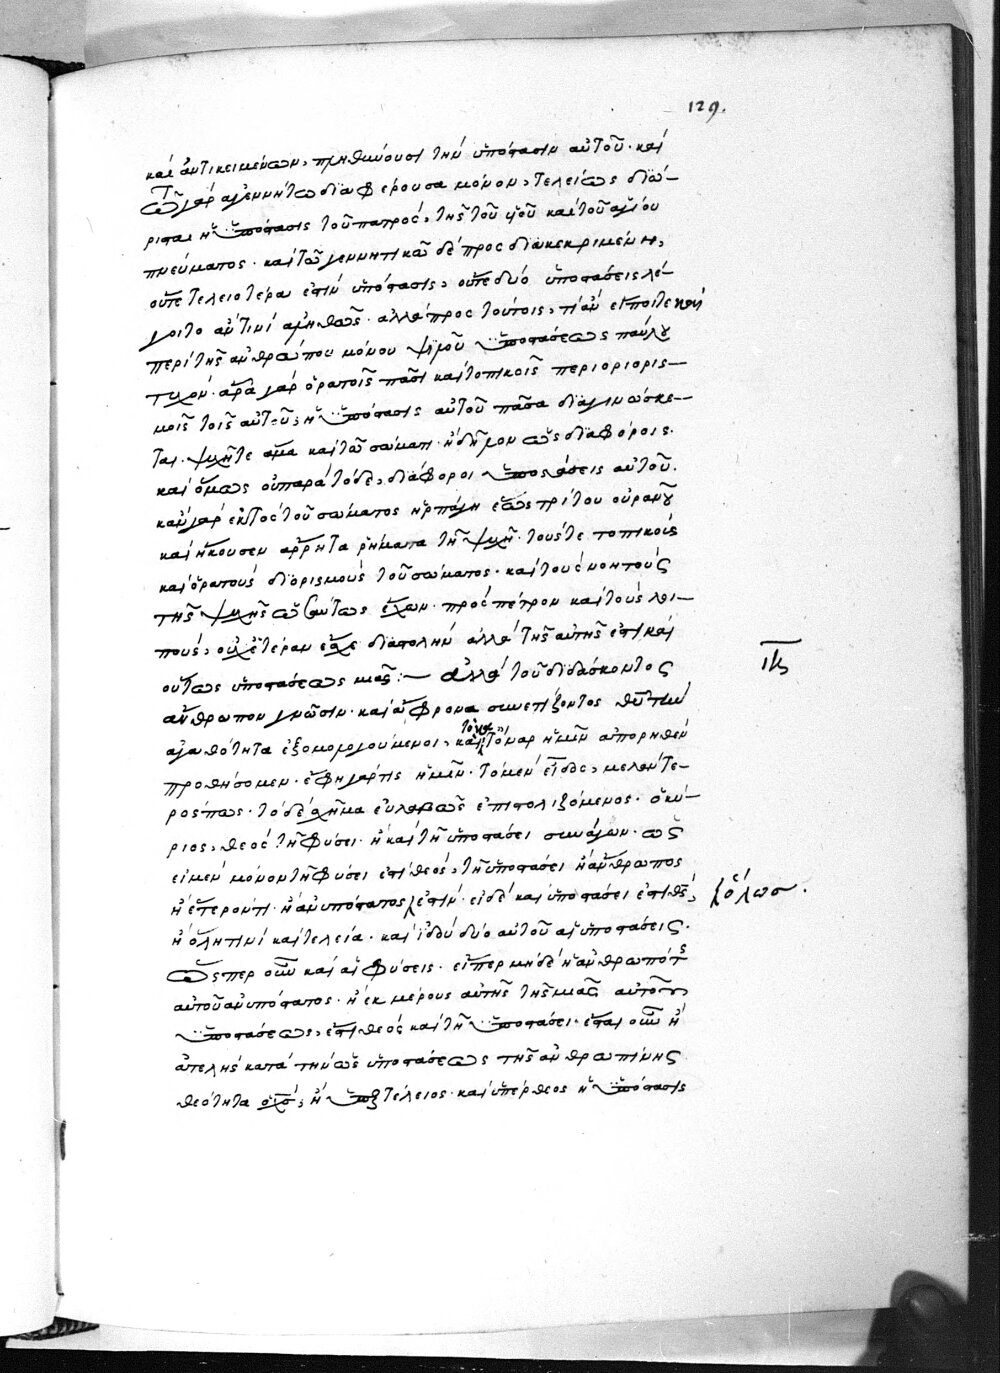 129.
καὶ ἀντικειμένων, πληθύουσι τὴν ὑπόστασιν αὐτοῦ· καὶ
τῶ γὰρ ἀγεννήτω διαφέρουσα μόνον, τελείως διώ-
ρισται ἡ ὑπόστασις τοῦ πατρὸς, τῆς τοῦ υἱοῦ καὶ τοῦ ἁγίου
πνεύματος· καὶ τῶ γεννητικῶ δὲ πρὸς διακεκριμένη,
οὔτε τελειοτέρα ἐστὶν ὑπόστασις, οὔτε δύο ὑποστάσεις λέ-
γοιτο ἂν τινὶ ἀληθῶς· ἀλλὰ πρὸς τούτοις, τί ἂν εἴποιτε καὶ
περὶ τῆς ἀνθρώπου μόνου ψιλοῦ ὑποστάσεως παύλου
τυχόν· ἆρα γὰρ ὁρατοῖς πᾶσι καὶ τοπικοῖς περιοριορισ-
μοῖς τοῖς αὐτοῦ, ἡ ὑπόστασις αὐτοῦ πᾶσα διαγινώσκε-
ται· ψυχῆ τε ἅμα καὶ τῶ σώματι· ἢ δῆλον ὡς διαφόροις·
καὶ ὅμως οὐ παρὰ τόδε, διάφοροι ὑποστάσεις αὐτοῦ·
κἂν γὰρ ἐκτὸς τοῦ σώματος ἡρπάγη ἕως τρίτου οὐρανοῦ
καὶ ἤκουσεν ἄρρητα ῥήματα τῆ ψυχῆ· τούς τε τοπικοὺς
καὶ ὁρατοὺς διορισμοὺς τοῦ σώματος· καὶ τοὺς νοητοὺς
τῆς ψυχῆς ὡσαύτως ἔχων· πρὸς πέτρον καὶ τοὺς λοι-
πούς, οὐχ ἑτέραν ἔσχε διαστολὴν ἀλλὰ τῆς αὐτῆς ἐστὶ καὶ
οὕτως ὑποστάσεως μιᾶς :— ἀλλὰ τοῦ διδάσκοντος
ἄνθρωπον γνῶσιν· καὶ ἄφρονα συνετίζοντος θεοῦ τὴν
ἀγαθότητα ἐξομολογούμενοι, καὶ τὸ γὰρ ἡμῖν ἀπορηθὲν
προθήσομεν· ἔφη γάρ τις ἡμῖν· τὸ μὲν εἶδος, μελαντε-
ρός πως· τὸ δὲ σχῆμα εὐλαβῶς ἐπιπολιζόμενος· ὁ κύ-
ριος, θεὸς τῆ φύσει· ἢ καὶ τῆ ὑποστάσει συνάγων· ὡς
εἰ μὲν μόνον τῆ φύσει ἐστὶ θεὸς, τῆ ὑποστάσει ἢ ἄνθρωπος
ἢ ἕτερόν τι· ἢ ἀνυπόστατος ἐστίν· εἰ δὲ καὶ ὑποστάσει ἐστὶ θεὸς,
ὅλως·
ἢ ὅλη τινὶ καὶ τελεία· καὶ ἰδοὺ δύο αὐτοῦ αἱ ὑποστάσεις·
ὥσπερ οὖν καὶ αἱ φύσεις· εἴπερ μηδὲ ἡ ἀνθρωπότης
αὐτοῦ ἀνυπόστατος· ἢ ἐκ μέρους αὐτῆς τῆς μιᾶς αὐτοῦ
ὑποστάσεως, ἔστι θεὸς καὶ τῆ ὑποστάσει· ἔσται οὖν ἢ
ἀτελὴς κατὰ τὴν ὡς ὑποστάσεως τῆς ἀνθρωπίνης
θεότητα ὁ χριστὸς, ἢ τέλειος· καὶ ὑπέρθεος ἡ ὑπόστασις